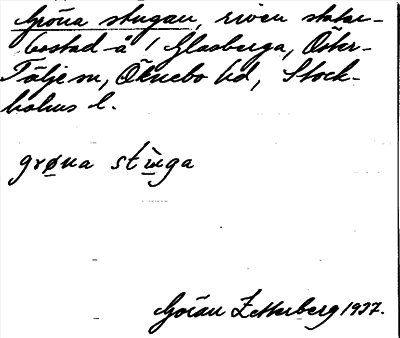 Gröna stugan, riven statar-
bostad å / Glasberga, Öster-
Tälje sn, Öknebo hd, Stock-
holms l.
grø̱na stu̱̇ga
Göran Zetterberg 1937.